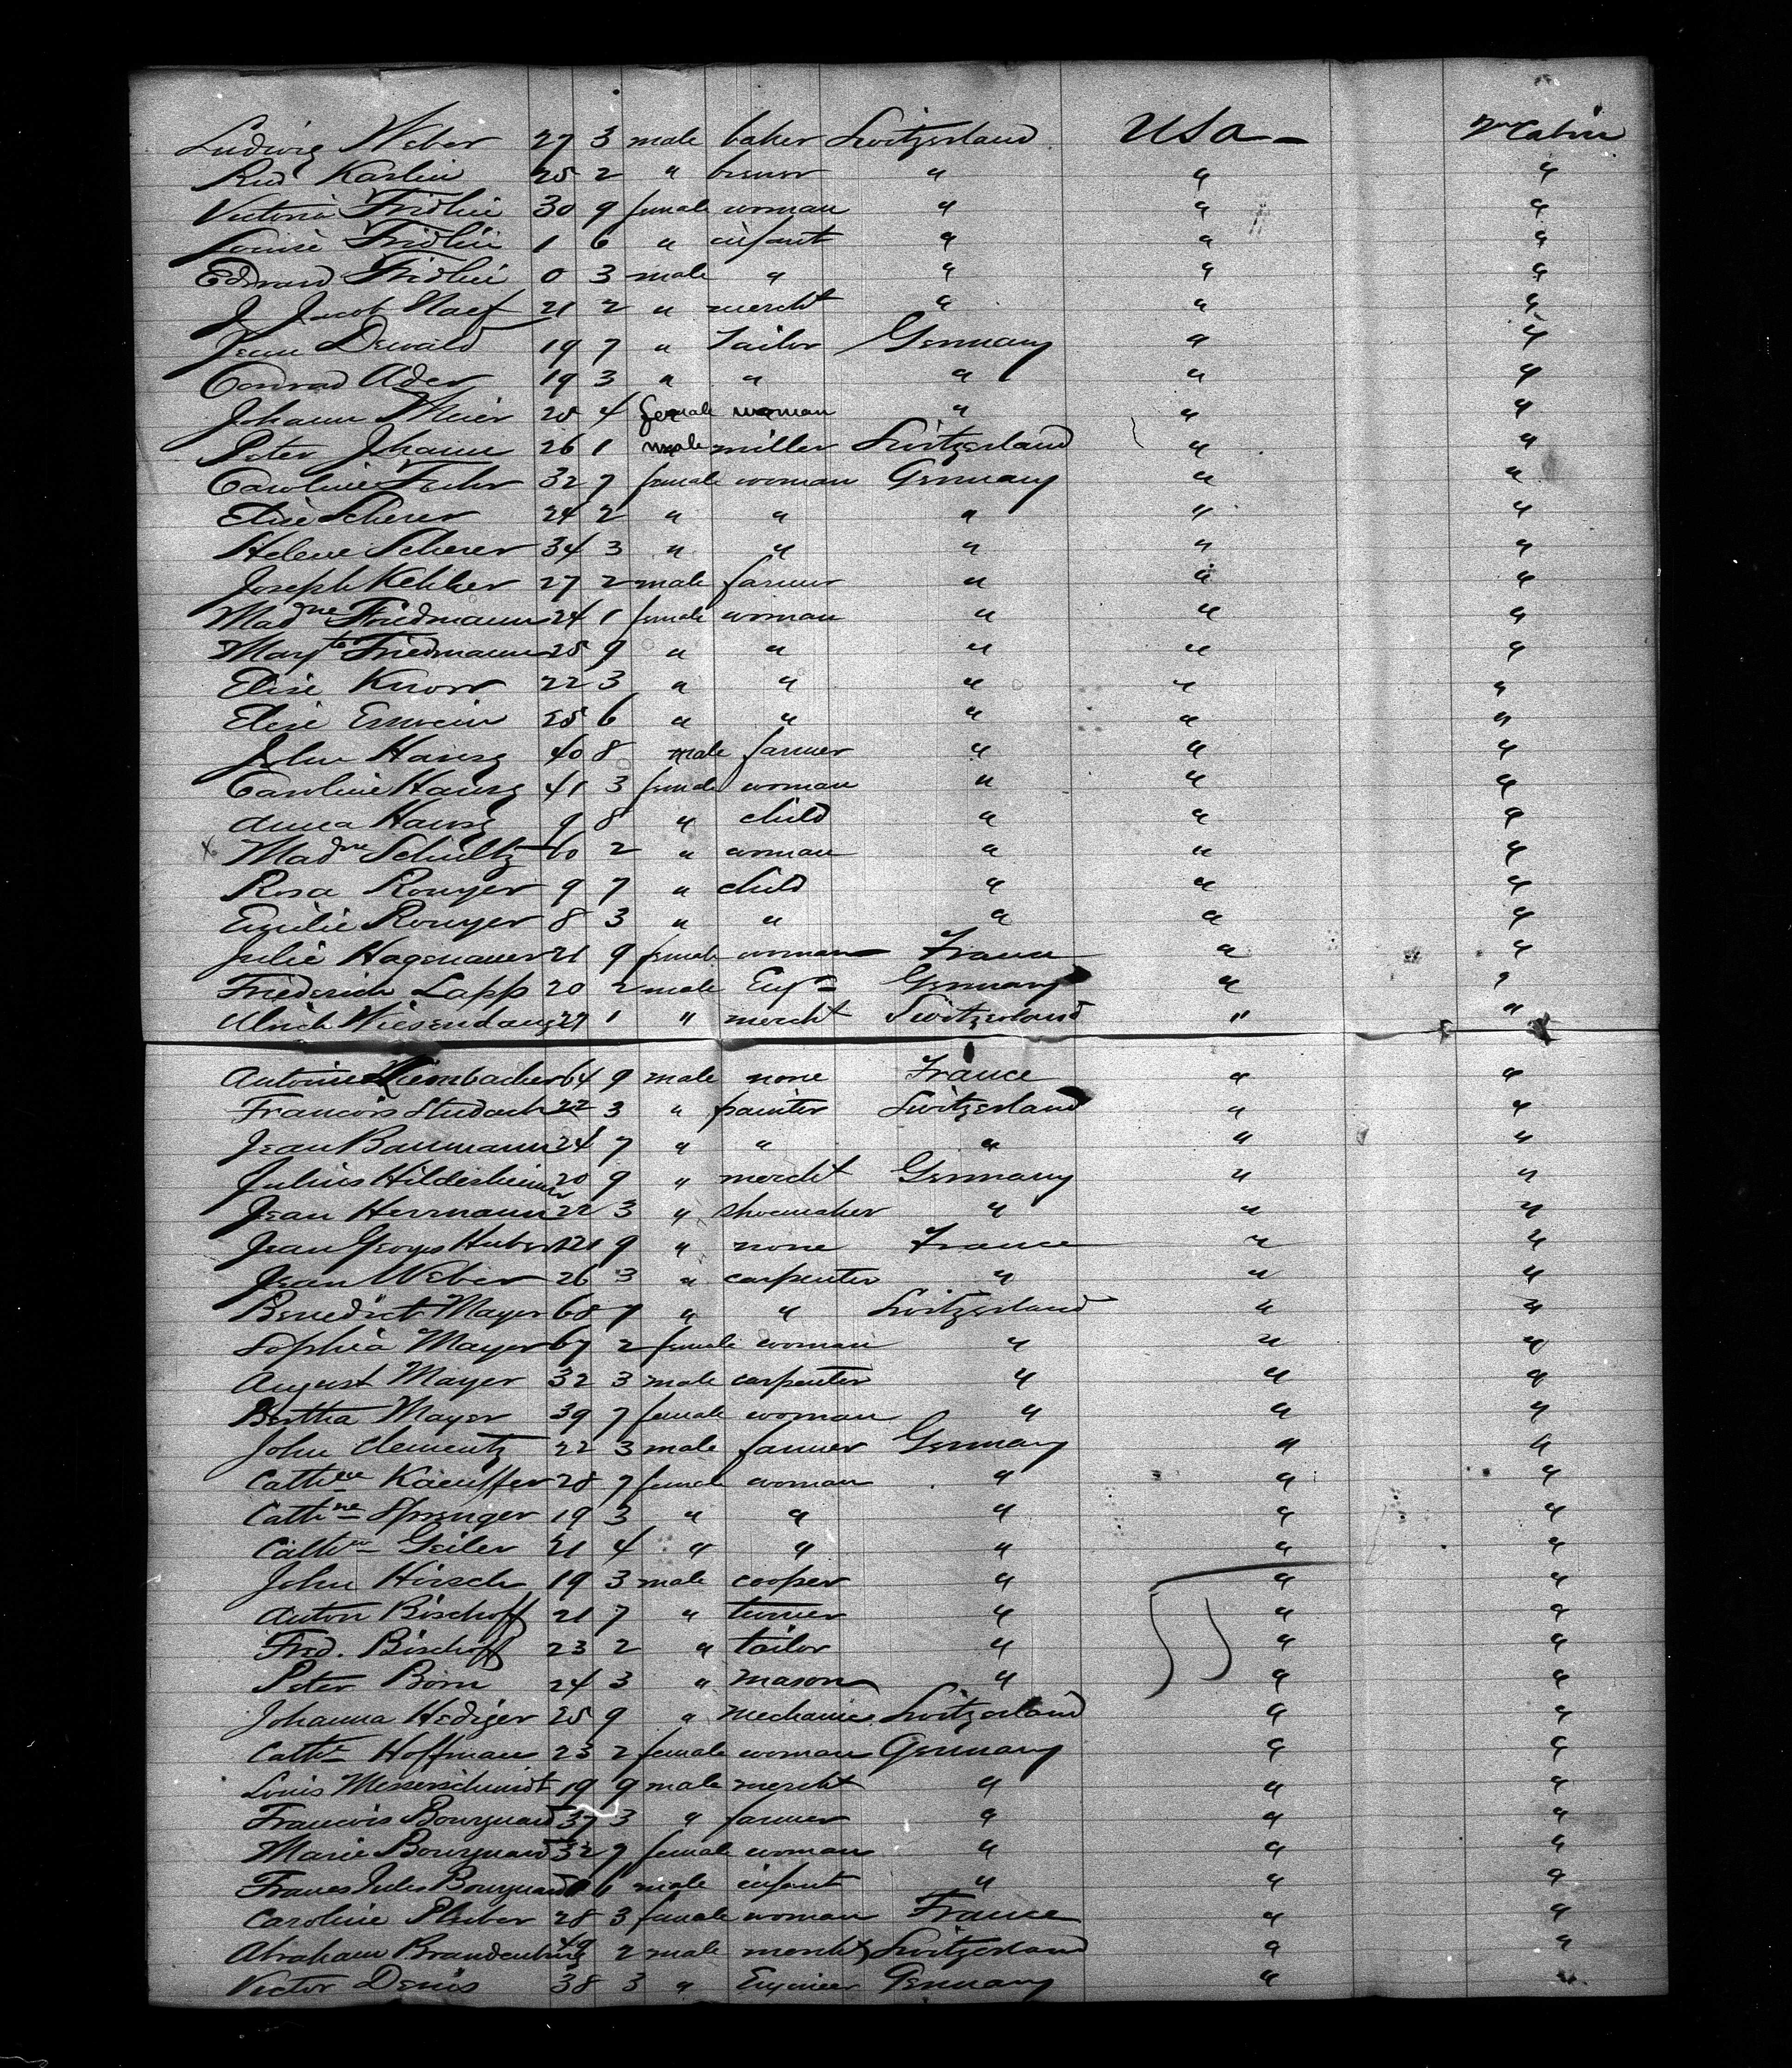 Ludwig Weber 27 3 male baker Switzerland USA 2nd Cabin
Rud Karlin 25 2 " brewer " " "
Victoria Fridlin 30 9 female woman " " "
Louise Fridlin 1 6 " infant " " "
Edward Fridlin 0 3 male " " " "
J Jacob Naef 21 2 " mercht " " "
Jean Dewald 19 7 " Tailor Germany " "
Conrad Ader 19 3 " " " " "
Johann Meier 20 4 female woman " " "
Peter Jhann 26 1 male miller Switzerland " "
Caroline Fuhr 32 7 female woman Germany " "
Elise Scherer 24 2 " " " " "
Helene Scherer 34 3 " " " " "
Joseph Kelber 27 2 male farmer " " "
Madme Friedmann 24 1 female woman " " "
Margte Friedmann 25 9 " " " " "
Elise Knorr 22 3 " " " " "
Elise Erswein 25 6 " " " " "
John Hausz 40 8 male farmer " " "
Caroline Hausz 41 3 female woman " " "
Anna Hausz 9 8 " child " " "
x Madme Schultz 60 2 " woman " " "
Rosa Rouyer 9 7 " child " " "
Emilie Rouyer 8 3 " " " " "
Julie Hagenauer 21 9 female woman France " "
Friederich Lapp 20 2 male Engr Germany " "
Ulrich Wiesendang 27 1 " mercht Switzerland " "
Antoine 64 9 male none France " "
Francois Studach 22 3 " painter Switzerland " "
Jean Baumann 24 7 " " " " "
Julius Hildesheimer 20 9 " mercht Germany " "
Jean Herrmann 22 3 " shoemaker " " "
Jean Georges Huber 21 9 " none France " "
Jean Weber 26 3 " carpenter " " "
Benedict Mayer 68 7 " " Switzerland " "
Sophia Mayer 67 2 female woman " " "
August Mayer 32 3 male carpenter " " "
Bertha Mayer 39 7 female woman " " "
John Clementz 22 3 male farmer Germany " "
Cathne Kaeuffer 28 7 female woman " " "
Cathne Sprenger 19 3 " " " " "
Cathne Geiler 21 4 " " " " "
John Hirsch 19 3 male cooper " " "
Anton Bischoff 21 7 " turner " " "
Fred. Bischoff 23 2 " tailor " " "
Peter Born 24 3 " mason " " "
Johanna Hediger 25 9 " mechanic Switzerland " "
Cathe Hoffman 23 2 female woman Germany " "
Louis Messerschmidt 19 9 male mercht " " "
Francois Bourquard 37 3 " farmer " " "
Marie Bourquard 32 7 female woman " " "
Frances Jules Bourquard 6 male infant " " "
Caroline 28 3 female woman France " "
Abraham Brandenburg 49 2 male mercht Switzerland " "
Victor Denis 38 3 " Engineer Germany " "